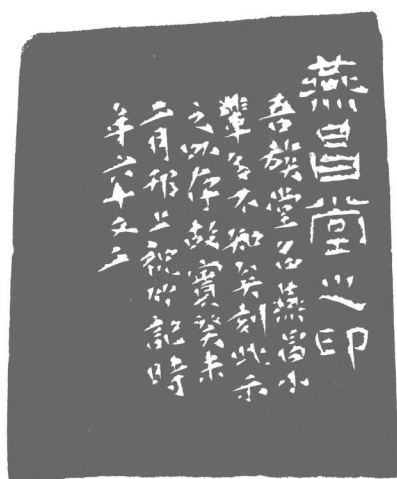 燕昌堂之印
吾族堂名燕昌小
輩多不知矣刻此示
之以存故實癸未
二月邗上祝竹記時
年六十又二